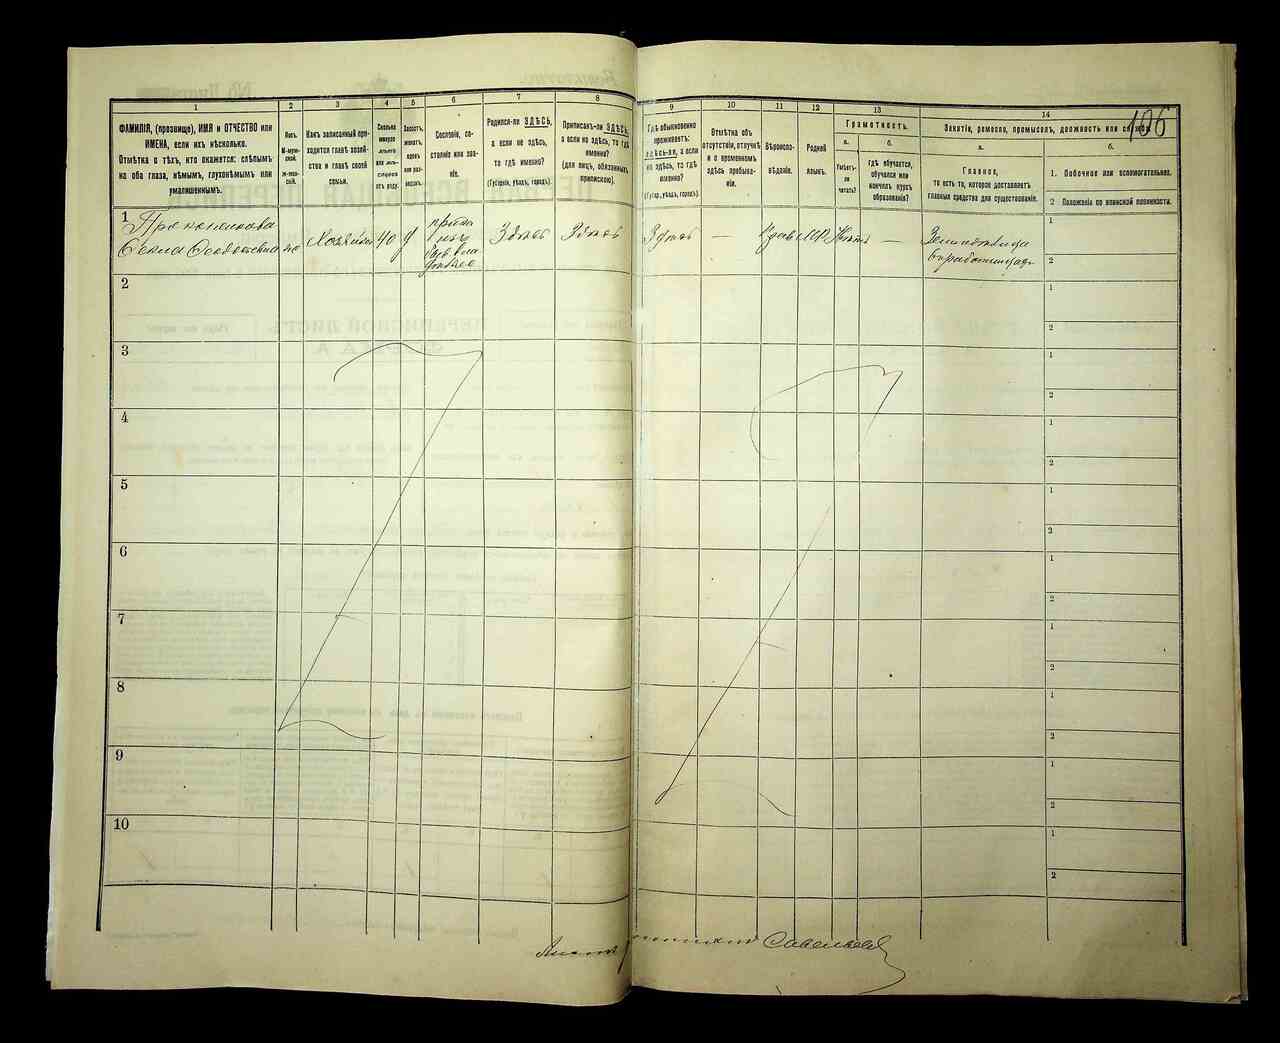 106
1
2
3
4
5
6
7
8
9
10
11
12
13
14
ФАМИЛІЯ, (прозвище), ИМЯ и ОТЧЕСТВО или
ИМЕНА, если ихъ нѣсколько.
Отмѣтка о тѣхъ, кто окажется: слѣпымъ
на оба глаза, нѣмымъ, глухонѣмымъ или
умалишеннымъ.
Полъ.
М-муж-
ской.
Ж-жен-
скій.
Какъ записанный при-
ходится главѣ хозяй-
ства и главѣ своей
семьи.
Сколько
минуло
лѣтъ
или мѣ-
сяцевъ
отъ роду.
Холостъ,
женатъ,
вдовъ
или раз-
веденъ.
Сословіе, со-
стояніе или зва-
ніе.
Родился-ли ЗДѢСЬ,
а если не здѣсь,
то гдѣ именно?
(Губернія, уѣздъ, городъ).
Приписанъ-ли ЗДѢСЬ,
а если не здѣсь, то гдѣ
именно?
(для лицъ, обязанныхъ
припискою).
Гдѣ обыкновенно
проживаетъ:
здѣсь-ли, а если
не здѣсь, то гдѣ
именно?
(Губер., уѣздъ, городъ).
Отмѣтка объ
отсутствіи, отлучкѣ
и о временномъ
здѣсь пребыва-
ніи.
Вѣроиспо-
вѣданіе.
Родной
языкъ.
Грамотность.
а.
б.
Умѣетъ-
ли
читать?
Гдѣ обучается,
обучался или
кончилъ курсъ
образованія?
Занятіе, ремесло, промыселъ, должность или служба.
а.
б.
Главное,
то есть то, которое доставляетъ
главныя средства для существованія.
1. Побочное или вспомогательное.
2 Положеніе по воинской повинности.
1
Ѳекла
ж
Хозяйка
40
Здѣсь
Здѣсь
Здѣсь
—
Прав
Нѣтъ
—
2
2
1
2
3
1
2
4
1
2
5
1
2
6
1
2
7
1
2
8
1
2
9
1
2
10
1
2
Савельевъ